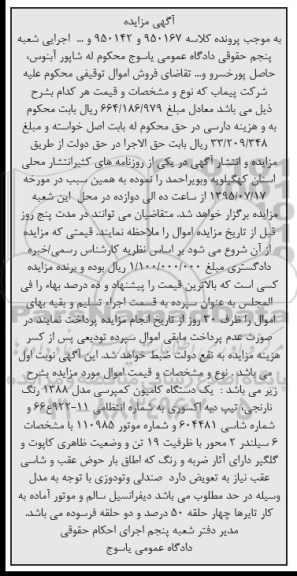 آگهی مزایده
به موجب پرونده کلاسه ۹۵۰۱۶۷ و ۹۵۰۱۴۲ و ... اجرایی شعبه
پنجم حقوقی دادگاه عمومی یاسوج محکوم له شاپور آبنوس،
حاصل پورخسرو و... تقاضای فروش اموال توقیفی محکوم علیه
شرکت پیماب که نوع و مشخصات و قیمت هر کدام بشرح
ذیل می باشد معادل مبلغ ۶۶۴/۱۸۶/۹۷۹ ریال بابت محکوم
به و هزینه دارسی در حق محکوم له بابت اصل خواسته و مبلغ
۳۳/۲۰۹/۳۴۸ ریال بابت حق الاجرا در حق دولت از طریق
مزایده و انتشار آگهی در یکی از روزنامه های کثیرانتشار محلی
استان کهگیلویه وبویراحمد را نموده به همین سبب در مورخه
۱۳۹۵/۰۷/۱۷ از ساعت ده الی دوازده در محل این شعبه
مزایده برگزار خواهد شد. متقاضیان می توانند در مدت پنج روز
قبل از تاریخ مزایده اموال را ملاحظه نمایند. قیمتی که مزایده
از آن شروع می شود بر اساس نظریه کارشناس رسمی/خبره
دادگستری مبلغ ۱/۱۰۰/۰۰۰/۰۰۰ ریال بوده و برنده مزایده
کسی است که بالاترین قیمت را پیشنهاد و ده درصد بهاء را فی
المجلس به عنوان سپرده به قسمت اجراء تسلیم و بقیه بهای
اموال را ظرف ۳۰ روز از تاریخ انجام مزایده پرداخت نمایند در
صورت عدم پرداخت مابقی اموال سپرده تودیعی پس از کسر
هزینه مزایده به نفع دولت ضبط خواهد شد. این آگهی نوبت اول
می باشد . نوع و مشخصات و قیمت اموال مورد مزایده بشرح
زیر می باشد : یک دستگاه کامیون کمپرسی مدل ۱۳۸۸ رنگ
نارنجی، تیپ دیه اکسوری به شماره انتظامی ۱۱-۹۲۲ع۶۶ و
شماره شاسی ۶۰۴۴۸۱ و شماره موتور ۱۱۰۹۸۵ با مشخصات
۶ سیلندر ۲ محور با ظرفیت ۱۹ تن و وضعیت ظاهری کاپوت و
گلگیر دارای آثار ضربه و رنگ که اطاق بار حوض عقب و شاسی
عقب نیاز به تعویض دارد صندلی وتودوزی با توجه به مدل
وسیله در حد مطلوب می باشد دیفرانسیل سالم و موتور آماده به
کار تایرها چهار حلقه ۵۰ درصد و دو حلقه فرسوده می باشد.
مدیر دفتر شعبه پنجم اجرای احکام حقوقی
دادگاه عمومی یاسوج